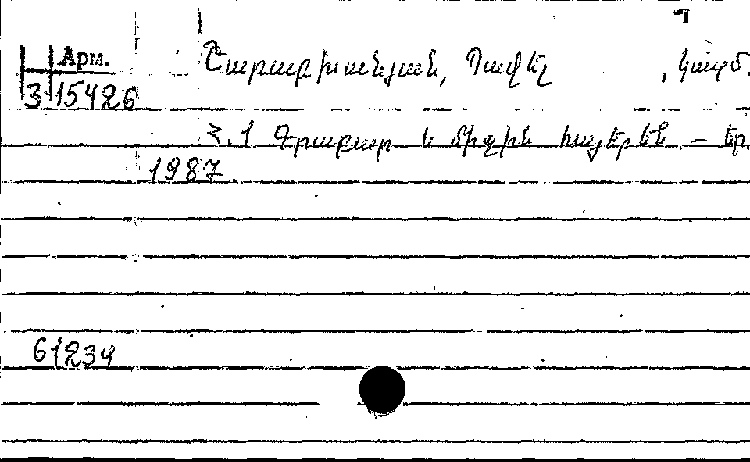 Арм. Շարաբխանյան, Պավել , կազմ.
3 15426
Հ. 1 Գրաբար և միջին հայերեն – Եր
1987
61234